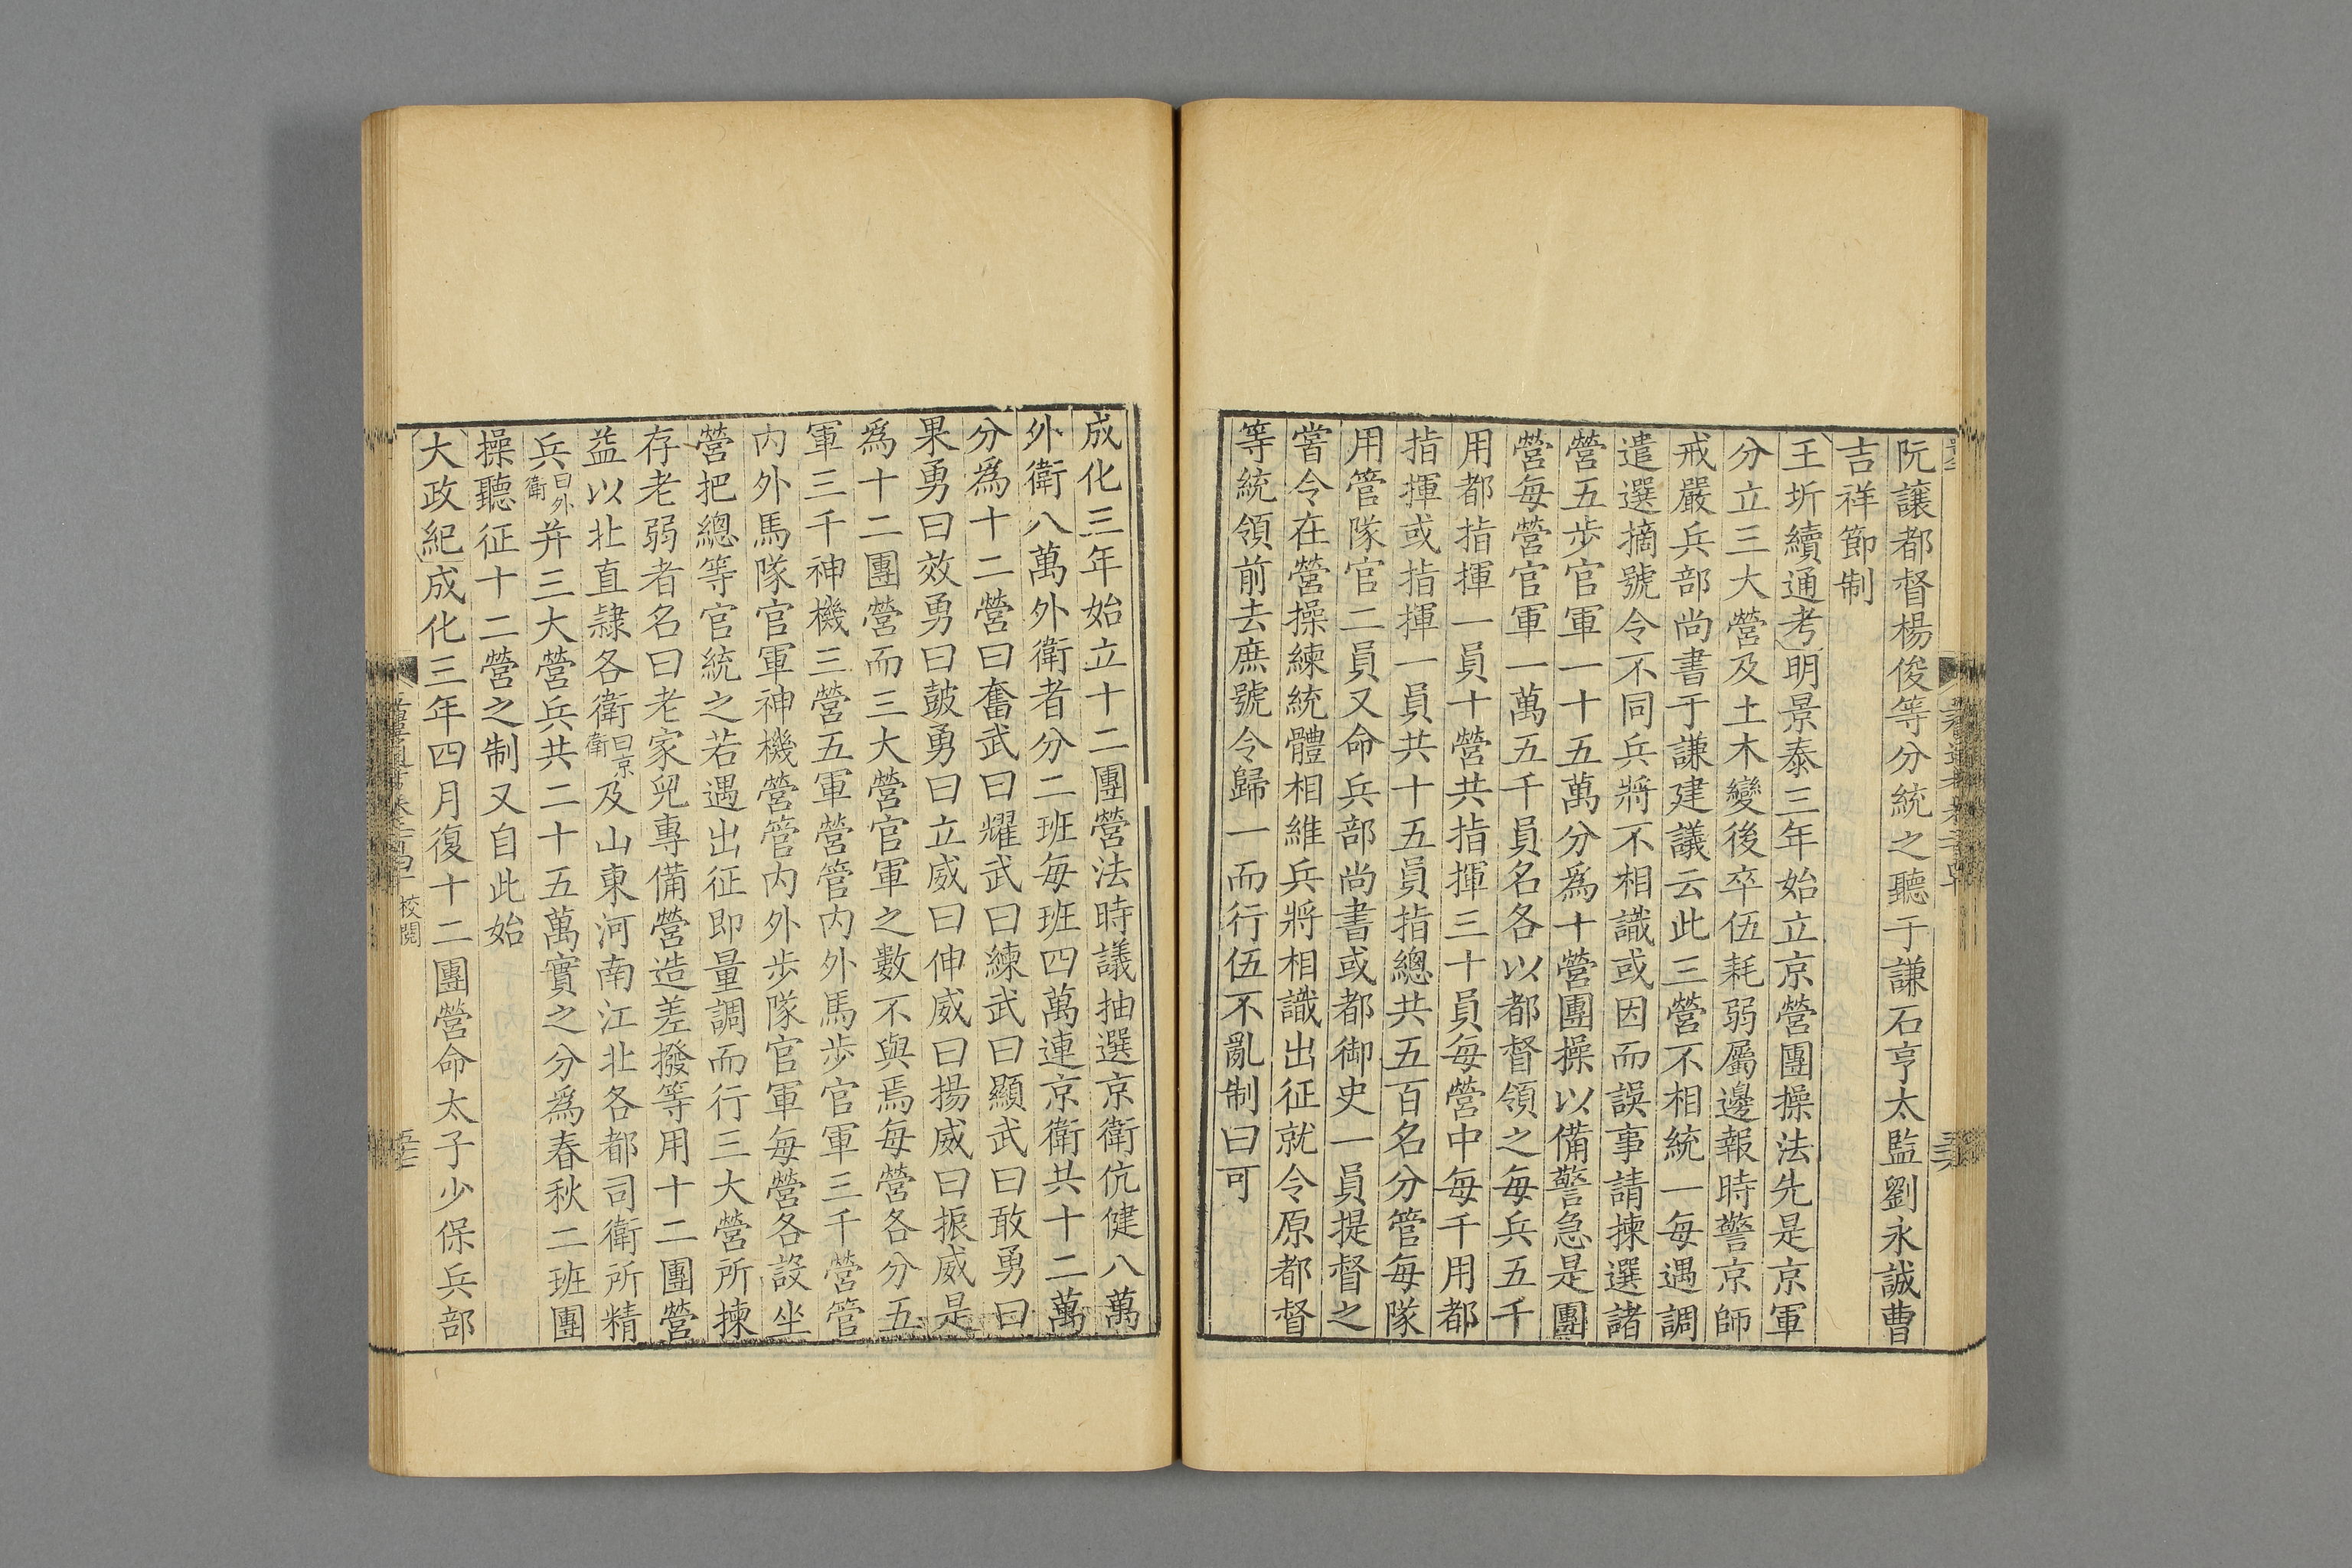 阮讓都督楊俊等分統之聽于謙石亨太監劉永誠曹
吉祥節制
王圻續通考明景泰三年始立京營團操法先是京軍
分立三大營及土木變後卒伍耗弱屬邊報時警京師
戒嚴兵部尚書于謙建議云此三營不相統一每遇調
遣選摘號令不同兵將不相識或因而誤事請揀選諸
營五步官軍一十五萬分爲十營團操以備警急是團
營每營官軍一萬五千員名各以都督領之每兵五千
用都指揮一員十營共指揮三十員每營中每千用都
指揮或指揮一員共十五員指總共五百名分管每隊
用管隊官二員又命兵部尚書或都御史一員提督之
當令在營操練統體相維兵將相識出征就令原都督
等統領前去庶號令歸一而行伍不亂制曰可
成化三年始立十二團營法時議抽選京衛伉健八萬
外衛八萬外衛者分二班每班四萬連京衛共十二萬
分爲十二營曰奮武曰耀武曰練武曰顯武曰敢勇曰
果勇曰效勇曰鼓勇曰立威曰伸威曰揚威曰振威是
爲十二團營而三大營官軍之數不與焉每營各分五
軍三千神機三營五軍營管內外馬步官軍三千營管
內外馬隊官軍神機營管內外步隊官軍每營各設坐
營把總等官統之若遇出征即量調而行三大營所揀
存老弱者名曰老家兒專備營造差撥等用十二團營
益以北直隸各衛曰京衛及山東河南江北各都司衛所精
兵曰外衛并三大營兵共二十五萬實之分爲春秋二班團
操聽征十二營之制又自此始
大政紀成化三年四月復十二團營命太子少保兵部
校閱